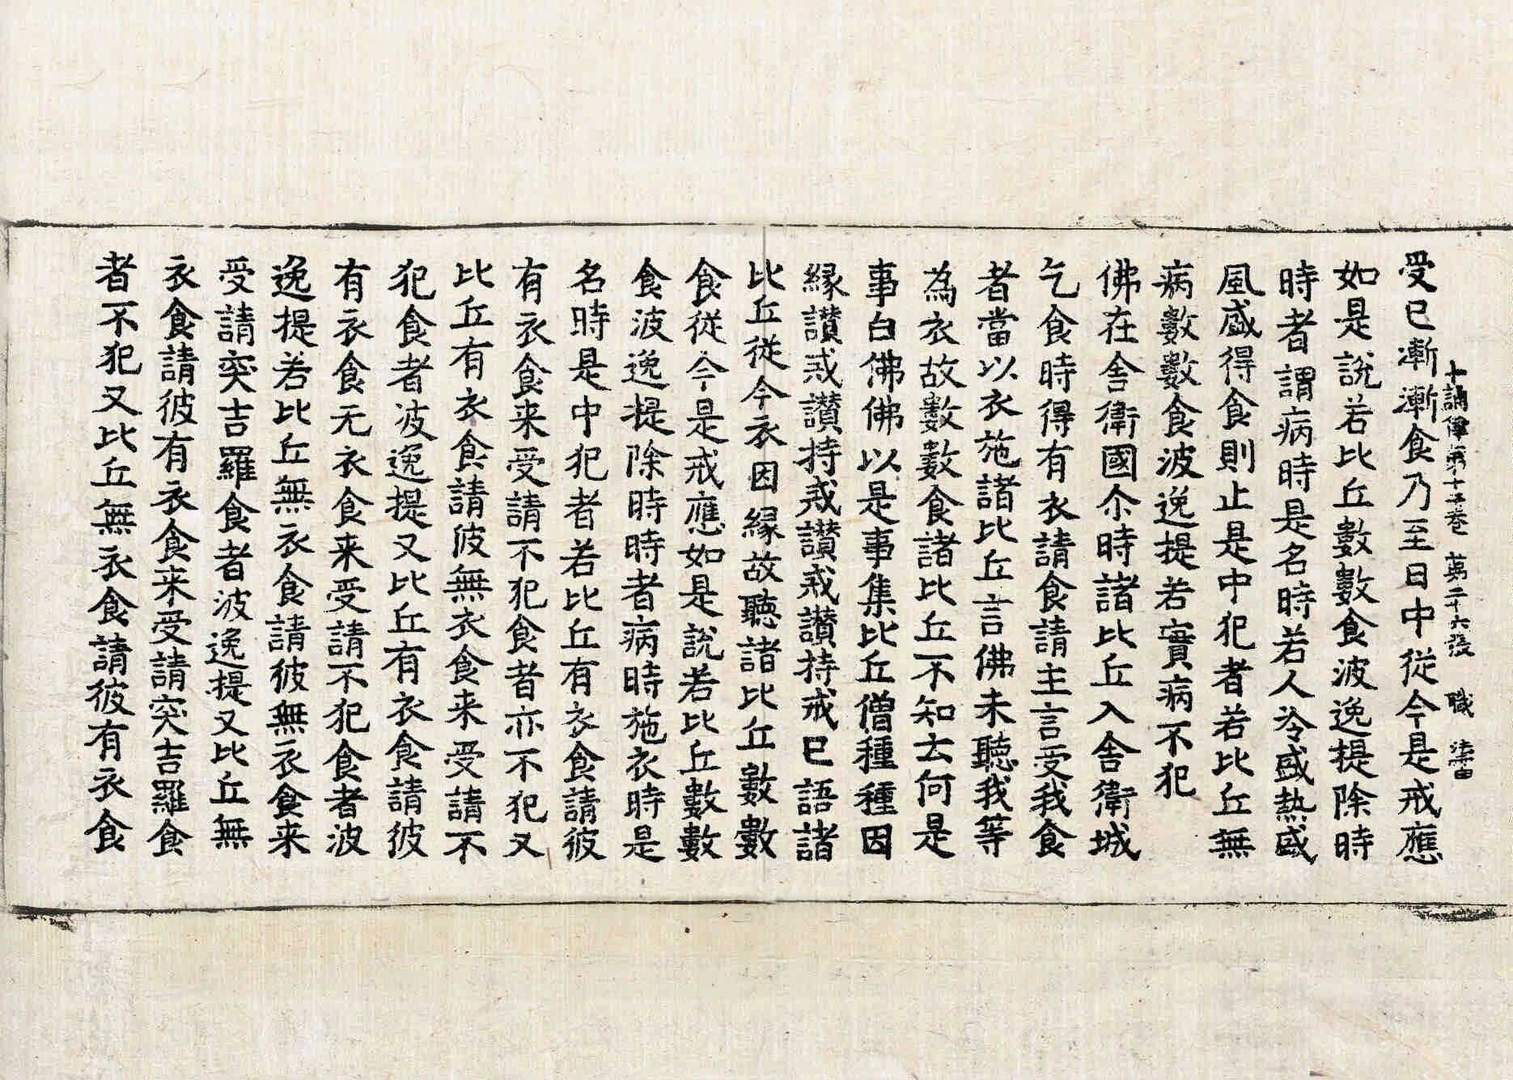 十誦律第十三卷 第二十六張 職
受已漸漸食乃至日中從今是戒應
如是說若比丘數數食波逸提除時
時者謂病時是名時若人冷盛熱盛
風盛得食則止是中犯者若比丘無
病數數食波逸提若實病不犯
佛在舍衛國尒時諸比丘入舍衛城
乞食時得有衣請食請主言受我食
者當以衣施諸比丘言佛未聽我等
為衣故數數食諸比丘不知云何是
事白佛佛以是事集比丘僧種種因
緣讚戒讚持戒讚戒讚持戒已語諸
比丘從今衣因緣故聽諸比丘數數
食從今是戒應如是說若比丘數數
食波逸提除時時者病時施衣時是
名時是中犯者若比丘有衣食請彼
有衣食来受請不犯食者亦不犯又
比丘有衣食請彼無衣食来受請不
犯食者波逸提又比丘有衣食請彼
有衣食无衣食来受請不犯食者波
逸提若比丘無衣食請彼無衣食来
受請突吉羅食者波逸提又比丘無
衣食請彼有衣食来受請突吉羅食
者不犯又比丘無衣食請彼有衣食